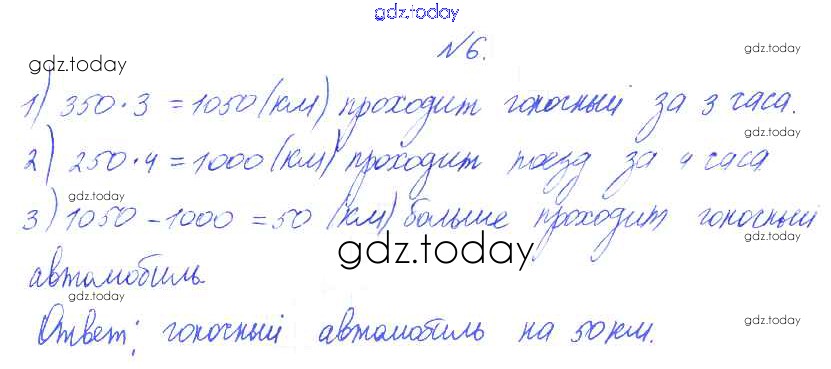 gdz.today
№6.
gdz.today
gdz.today
1) 350·3 = 1050 (км) проходит гоночный за 3 часа.
gdz.today
2) 250·4 = 1000 (км) проходит поезд за 4 часа
gdz.today
gdz.today
3) 1050 - 1000 = 50 (км) больше проходит гоночный
gdz.today
автомобиль.
gdz.today
gdz.today
Ответ: гоночный автомобиль на 50 км.
gdz.today